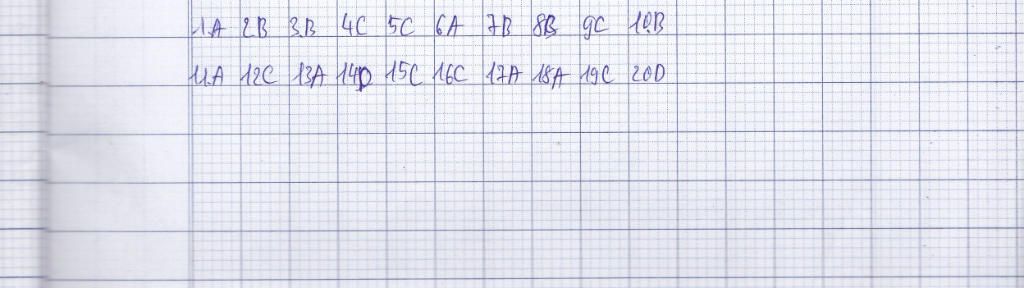 1.A 2B 3.B 4C 5C 6A 7B 8B 9C 10.B
11.A 12C 13A 14D 15C 16C 17A 18A 19C 20D